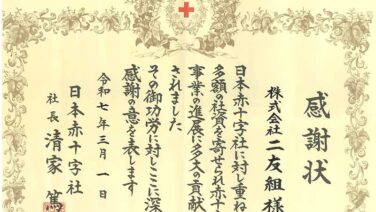 感謝状
株式会社二友組様
日本赤十字社に対し重ね
多額の社資を寄せられ赤十
事業の進展に多大の貢献
されました
その御功労に対しここに深
感謝の意を表します
令和七年三月一日
日本赤十字社
社長 清家 篤